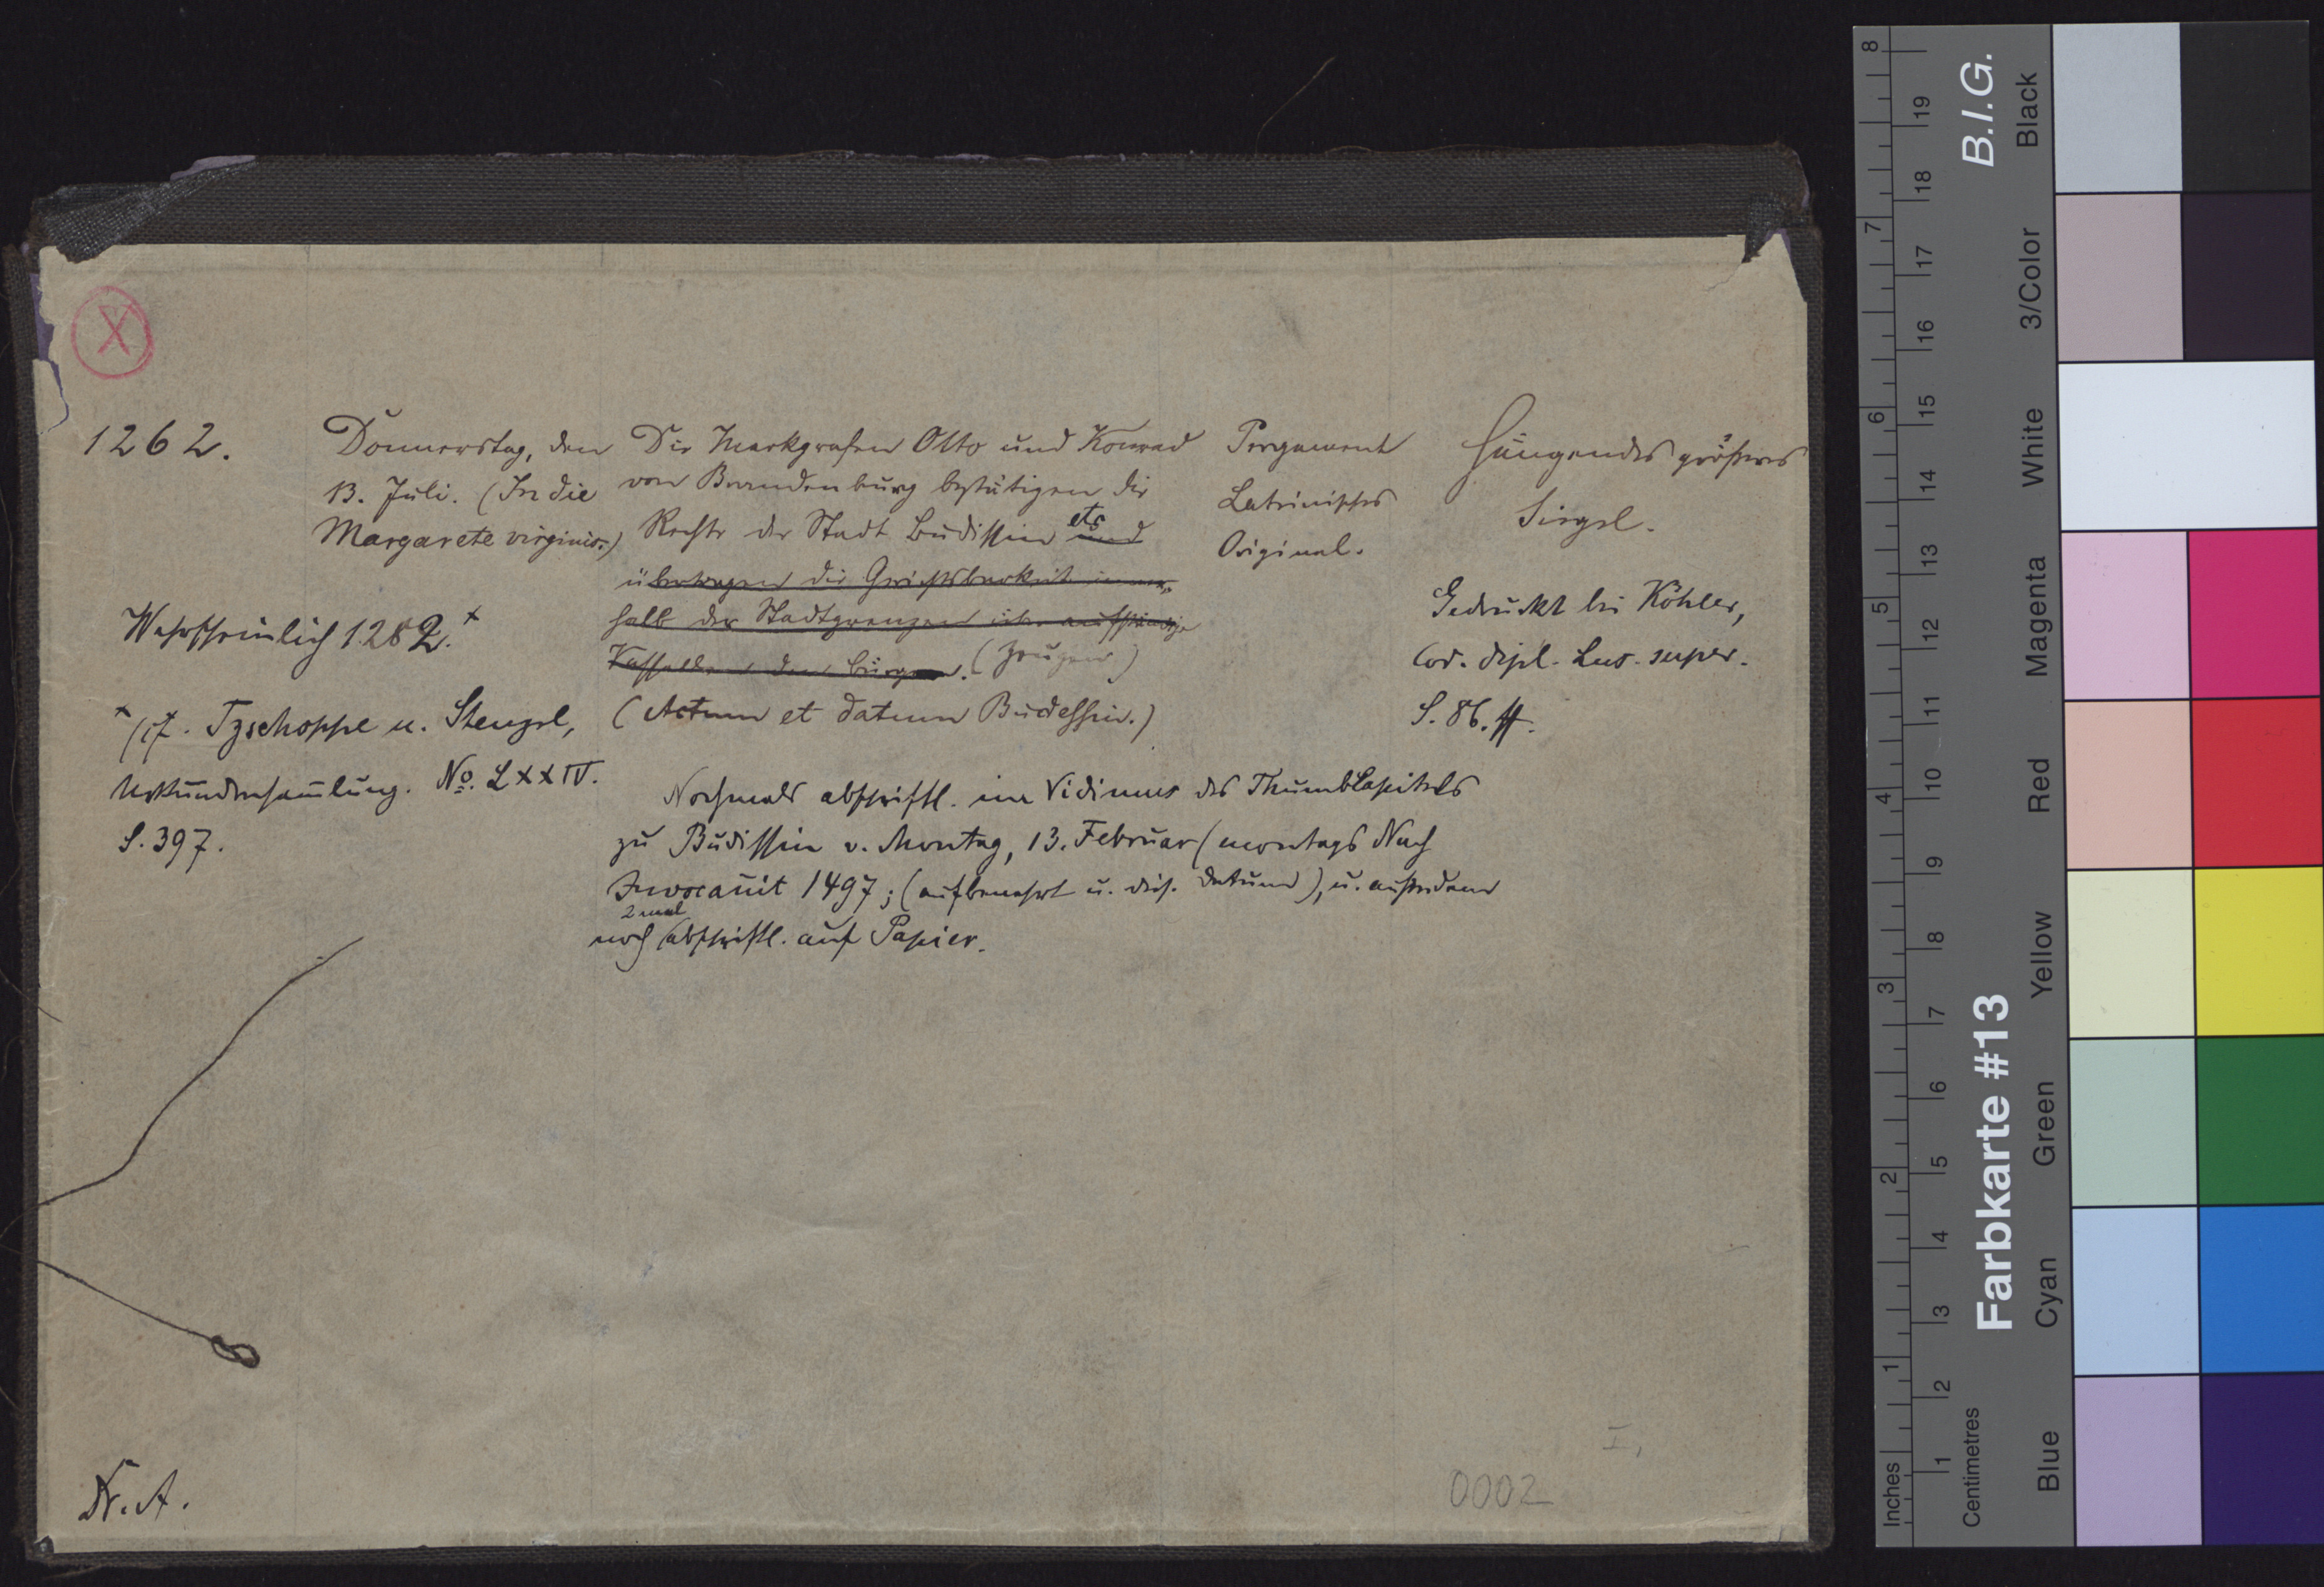 X
1262.
Donnerstag, den
13. Juli. (In die
Margarete virginis.)
Die Markgrafen Otto und Konrad
von Brandenburg bestätigen die
Rechte der Stadt Budissin und etc
übertragen die Gerichtsbarkeit inner-
halb der Stadtgrenzen über
Vasallen den Bürgern. (Zeugen)
(Actum et datum Budessin.)
Pergament
Lateinisches
Original.
Hängendes größeres
Siegel.
Gedruckt bei Köhler,
Cod. dipl. Lus. super.
S. 86. ff.
Wahrscheinlich 1282.+
+ cf. Tzschoppe u. Stenzel,
Urkundensam̄lung. No. LXXIV.
S. 397.
Nochmals abschriftl. im Vidimus des Thumbkapitels
zu Budissin v. Montag, 13. Februar (montags Nach
Invocauit 1497; (aufbewahrt u. dies. Datum), u. außerdem
noch 2 mal abschriftl. auf Papier.
N. A.
I,
0002
Inches
1 2 3 4 5 6 7 8
Centimetres
1 2 3 4 5 6 7 8 9 10 11 12 13 14 15 16 17 18 19
Farbkarte #13
B.I.G.
Blue
Cyan
Green
Yellow
Red
Magenta
White
3/Color
Black